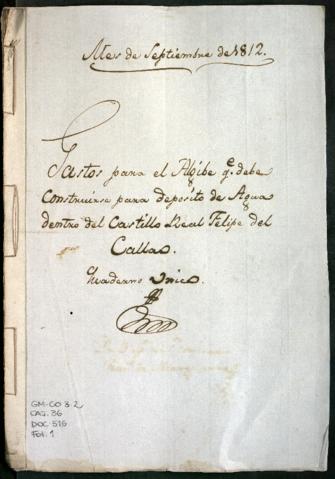 Mes de Septiembre de 1812.
Gastos para el Algibe q.e debe
Construirse para deposito de Agua
dentro del Castillo Real Felipe del
Callao.
Quaderno Unico
GM-CO 3.2
CAJ. 36
DOC. 516
Fol. 1